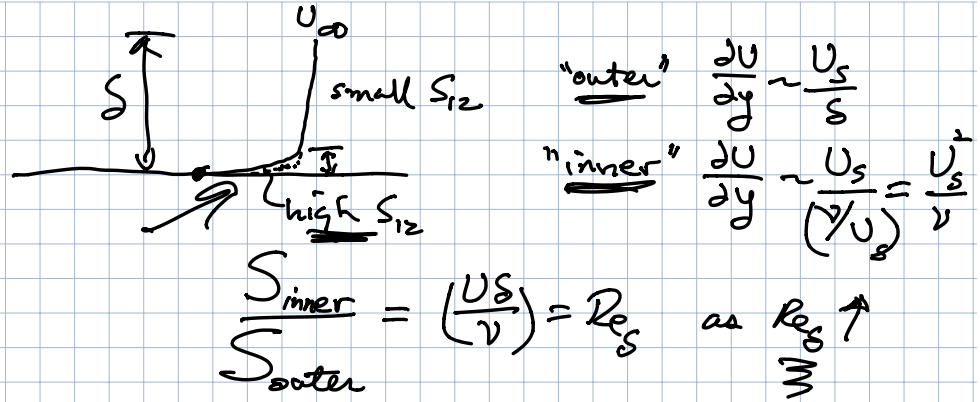 U∞
δ
small S₁₂
high S₁₂
"outer" ∂U/∂y ~ U_s/δ
"inner" ∂U/∂y ~ U_s/(ν/U_s) = U_s²/ν
S_inner/S_outer = (Uδ/ν) = Re_δ as Re_δ ↑